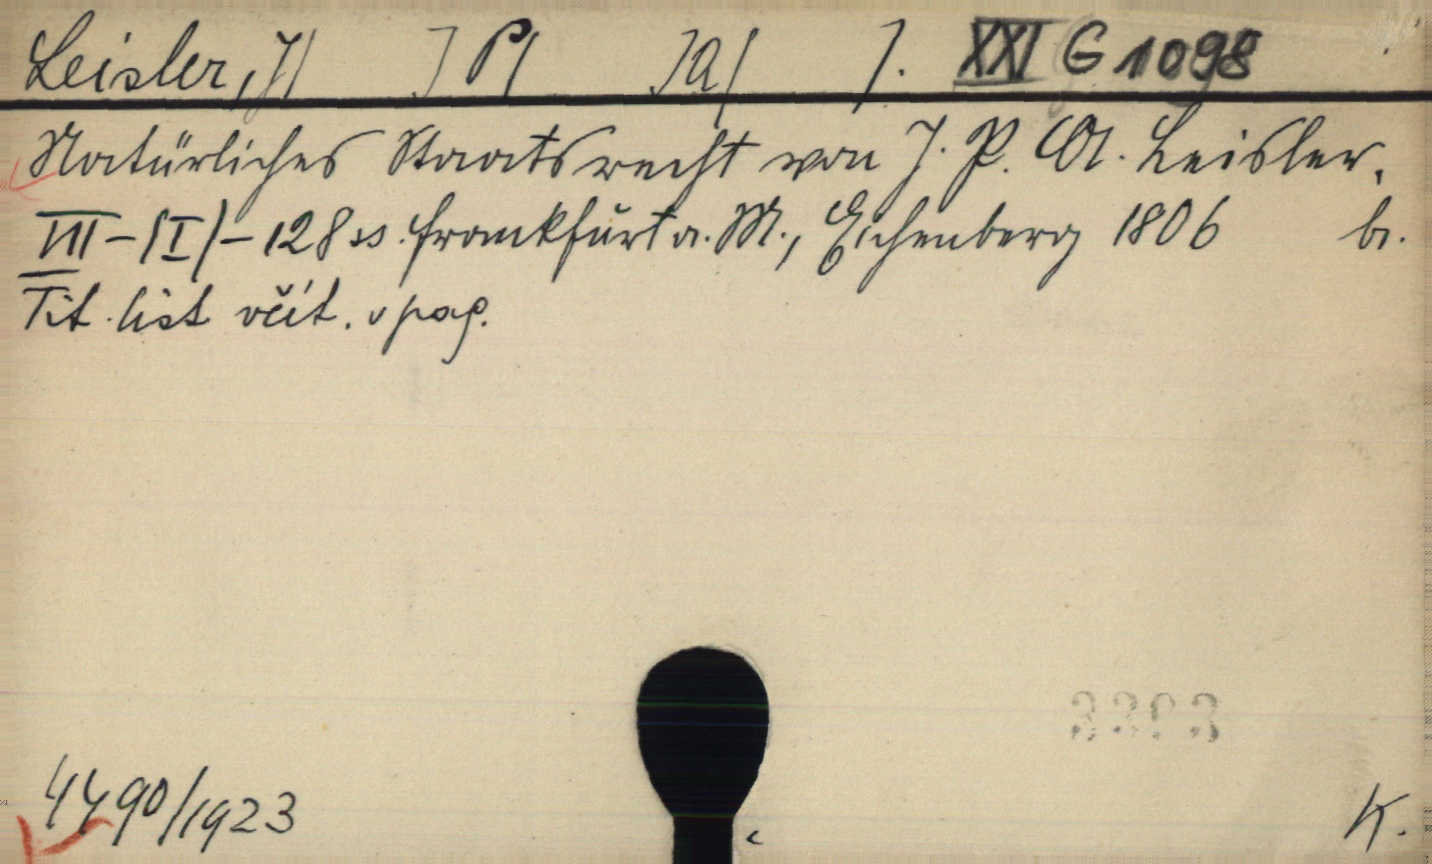 Leisler, J[ ] P[ ] A[ ]. XXI G 1098
Natürliches Staatsrecht von J. P. A. Leisler.
VIII-(I)-128 ss. Frankfurt a. M., Eichenberg 1806 br.
Tit. list včít. v pag.
4490/1923
K.